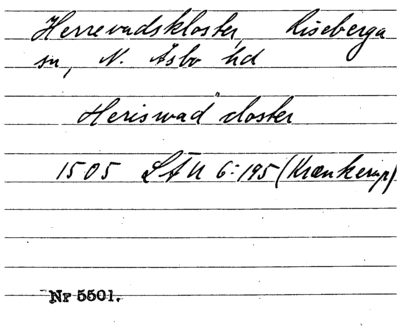 Herrevadskloster, Riseberga
sn, N. Åsbo hd
Heriswad closter
1505 LÅU 6:195 (Kronkerup)
Nr 5501.